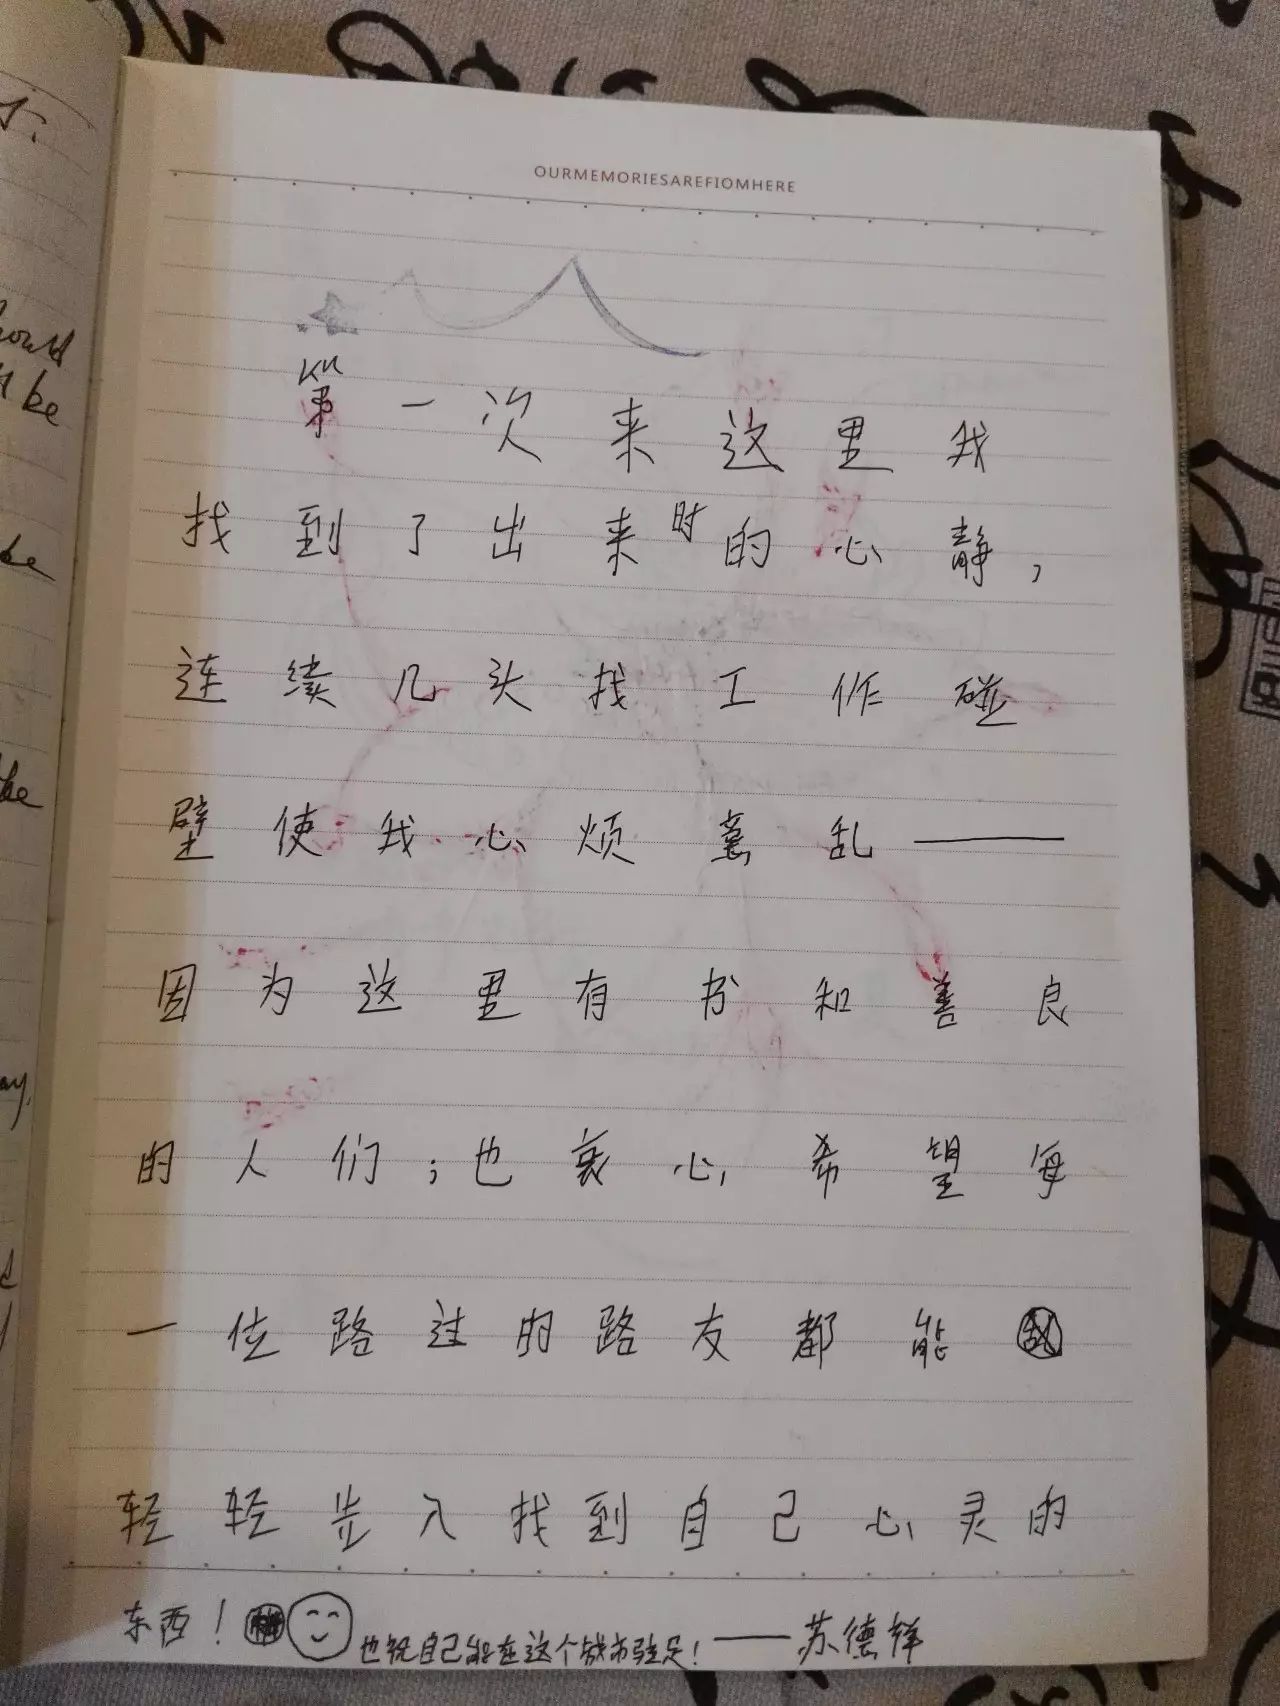 OURMEMORIESAREFIOMHERE
第一次来这里我
找到了出来时的心静,
连续几头找工作碰
壁使我心烦意乱——
因为这里有书和善良
的人们;也衷心希望每
一位路过的路友都能
轻轻步入找到自己心灵的
东西!也祝自己能在这个城市驻足!——苏德锋
ould
be